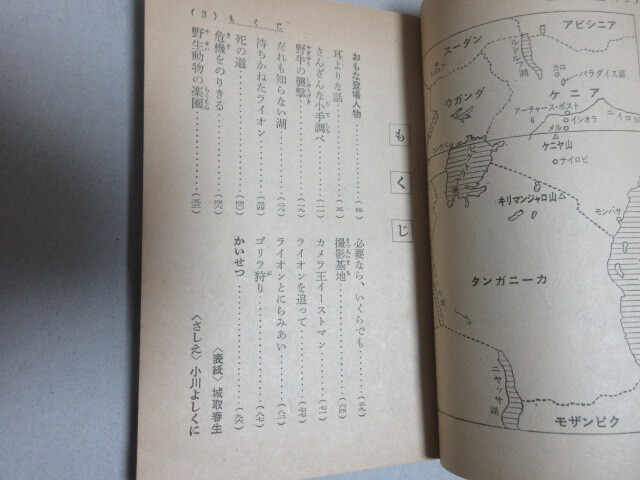 (3) もくじ
もくじ
おもな登場人物…………(四)
耳よりな話…………(五)
さんざんな小手調べ…………(一一)
野牛の襲撃…………(一九)
だれも知らない湖…………(二六)
待ちかねたライオン…………(三四)
死の道…………(四〇)
危機をのりきる…………(四六)
野生動物の楽園…………(五三)
必要なら、いくらでも…………(五九)
撮影基地…………(六四)
カメラ王イーストマン…………(七一)
ライオンを追って…………(七七)
ライオンとにらみあい…………(八二)
ゴリラ狩り…………(八七)
かいせつ…………(九六)
〈表紙〉城取春生
〈さしえ〉小川よしくに
スーダン
アビシニア
ルドルフ湖
カロ
パラダイス湖
ウガンダ
ケニア
アーチャース・ポスト
イシオラ
メル
ケニヤ山
ナイロビ
キリマンジャロ山
モンバサ
タンガニーカ
ニヤッサ湖
モザンビク